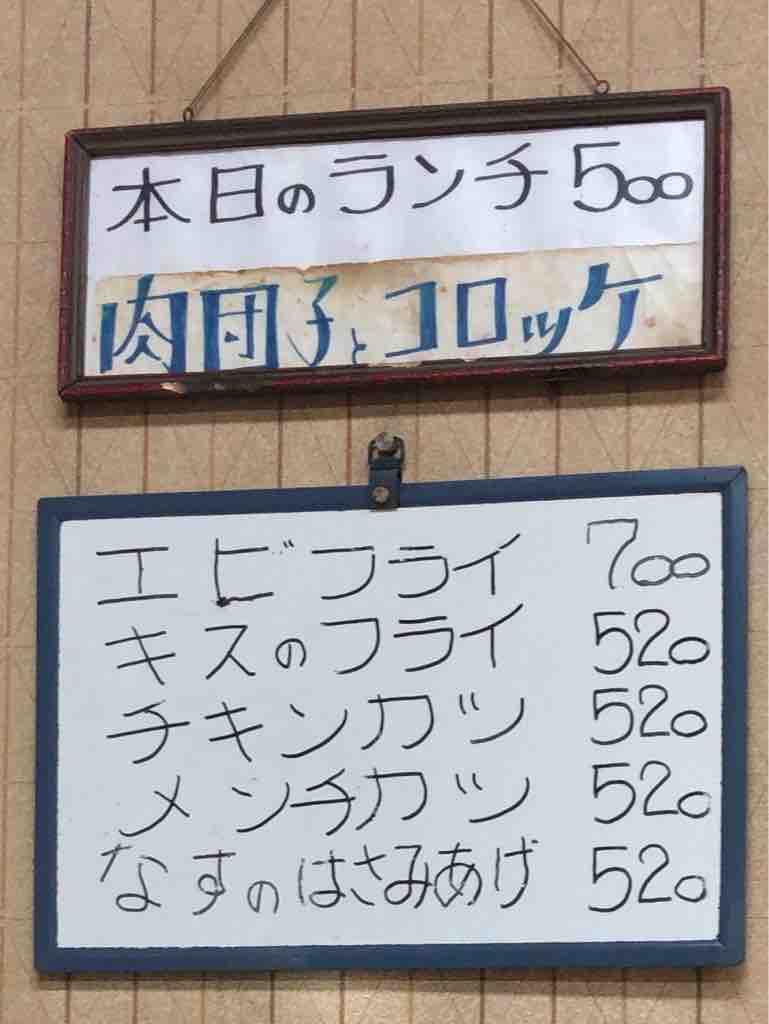 本日のランチ 500
肉団子とコロッケ
エビフライ 700
キスのフライ 520
チキンカツ 520
メンチカツ 520
なすのはさみあげ 520